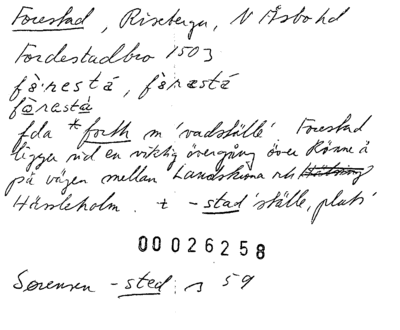 Forestad, Riseberga, N Åsbo hd
Fordestadbro 1503
få·restá, fårestá
fårestá
fda *forth m 'vadställe'. Forestad
ligger vid en viktig övergång över Rönne å
på vägen mellan Landskrona och
Hässleholm. + -stad 'ställe, plats'
00026258
Sørensen -sted s 59